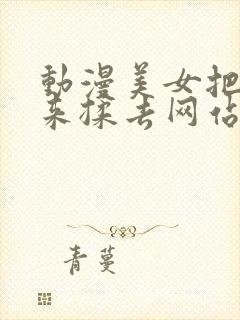 動漫美女把
来揉去网佔
青蔓